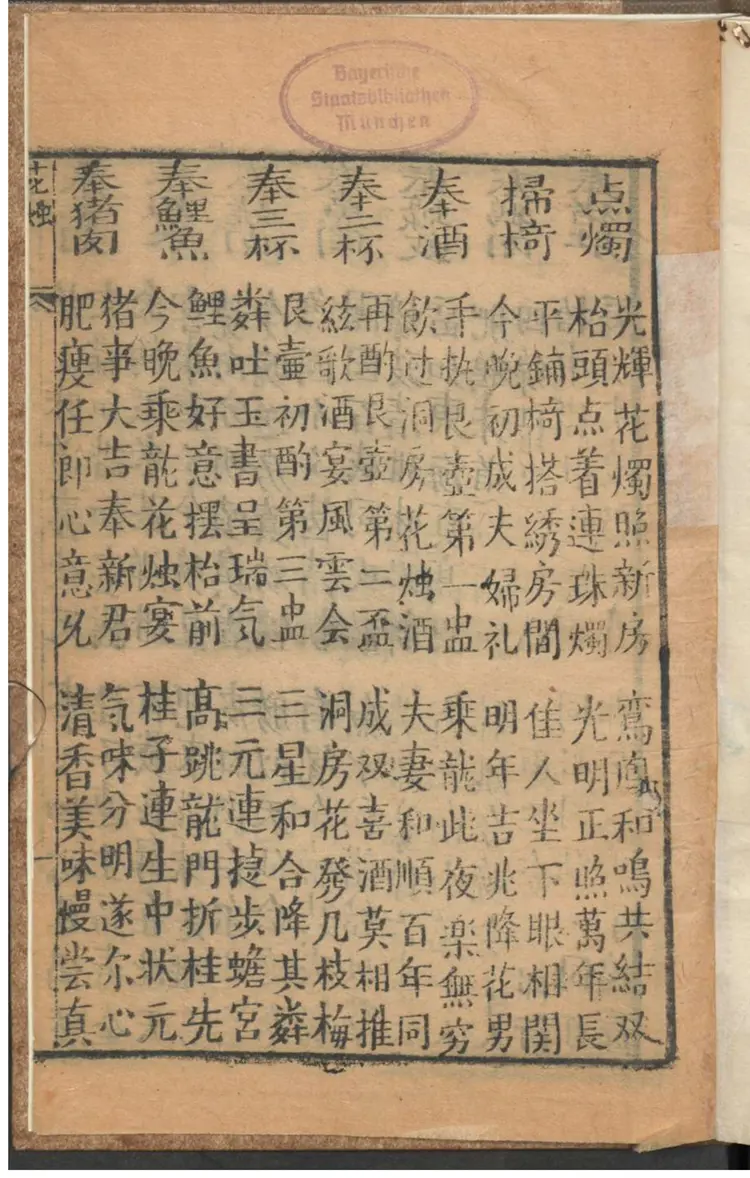 Bayerische
Staatsbibliothek
München
点燭
光輝花燭照新房 鸞凰和鳴共結双
枱頭点着連珠燭 光明正照萬年長
掃椅
平鋪椅搭綉房間 佳人坐下眼相関
今晚初成夫婦礼 明年吉兆降花男
奉酒
手执艮壺第一盅 乘龍此夜楽無穷
飲过洞房花烛酒 夫妻和順百年同
奉二杯
再酌艮壺第二盃 成双喜酒莫相推
絃歌酒宴風雲会 洞房花發几枝梅
奉三杯
艮壺初酌第三盅 三星和合降其粦
粦吐玉書呈瑞気 三元連捷步蟾宮
奉鯉魚
鯉魚好意摆枱前 髙跳龍門折桂先
今晚乘龍花烛宴 桂子連生中状元
奉猪肉
猪事大吉奉新君 気味分明遂尔心
肥瘦任郎心意 清香美味慢尝真
花烛